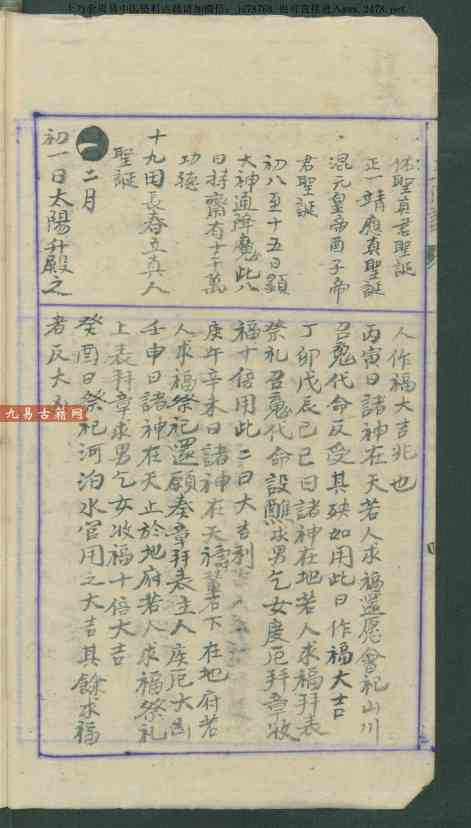 佑聖真君聖誕
正一靖應真聖誕
混元皇帝酉子帝
君聖誕
初八至十五日顕
大神通降魔此八
日持齋有十千萬
功德
十九田長春立真人
聖誕
二月
初一日太陽升殿之
人作福大吉兆也
丙寅日諸神在天若人求福還愿會祀山川
召鬼代命反受其殃如用此日作福大吉
丁卯戊辰己巳日諸神在地若人求福拜表
祭礼召鬼代命設醮求男乞女度厄拜章收
福十倍用此二日大吉利
庚午辛未日諸神在天 下在地府若
人求福祭祀還願奏章拜表主人疾厄大凶
壬申日諸神在天止於地府若人求福祭礼
上表拜章求男乞女收福十倍大吉
癸酉日祭祀河泊水官用之大吉其餘求福
者反大
九易古籍网